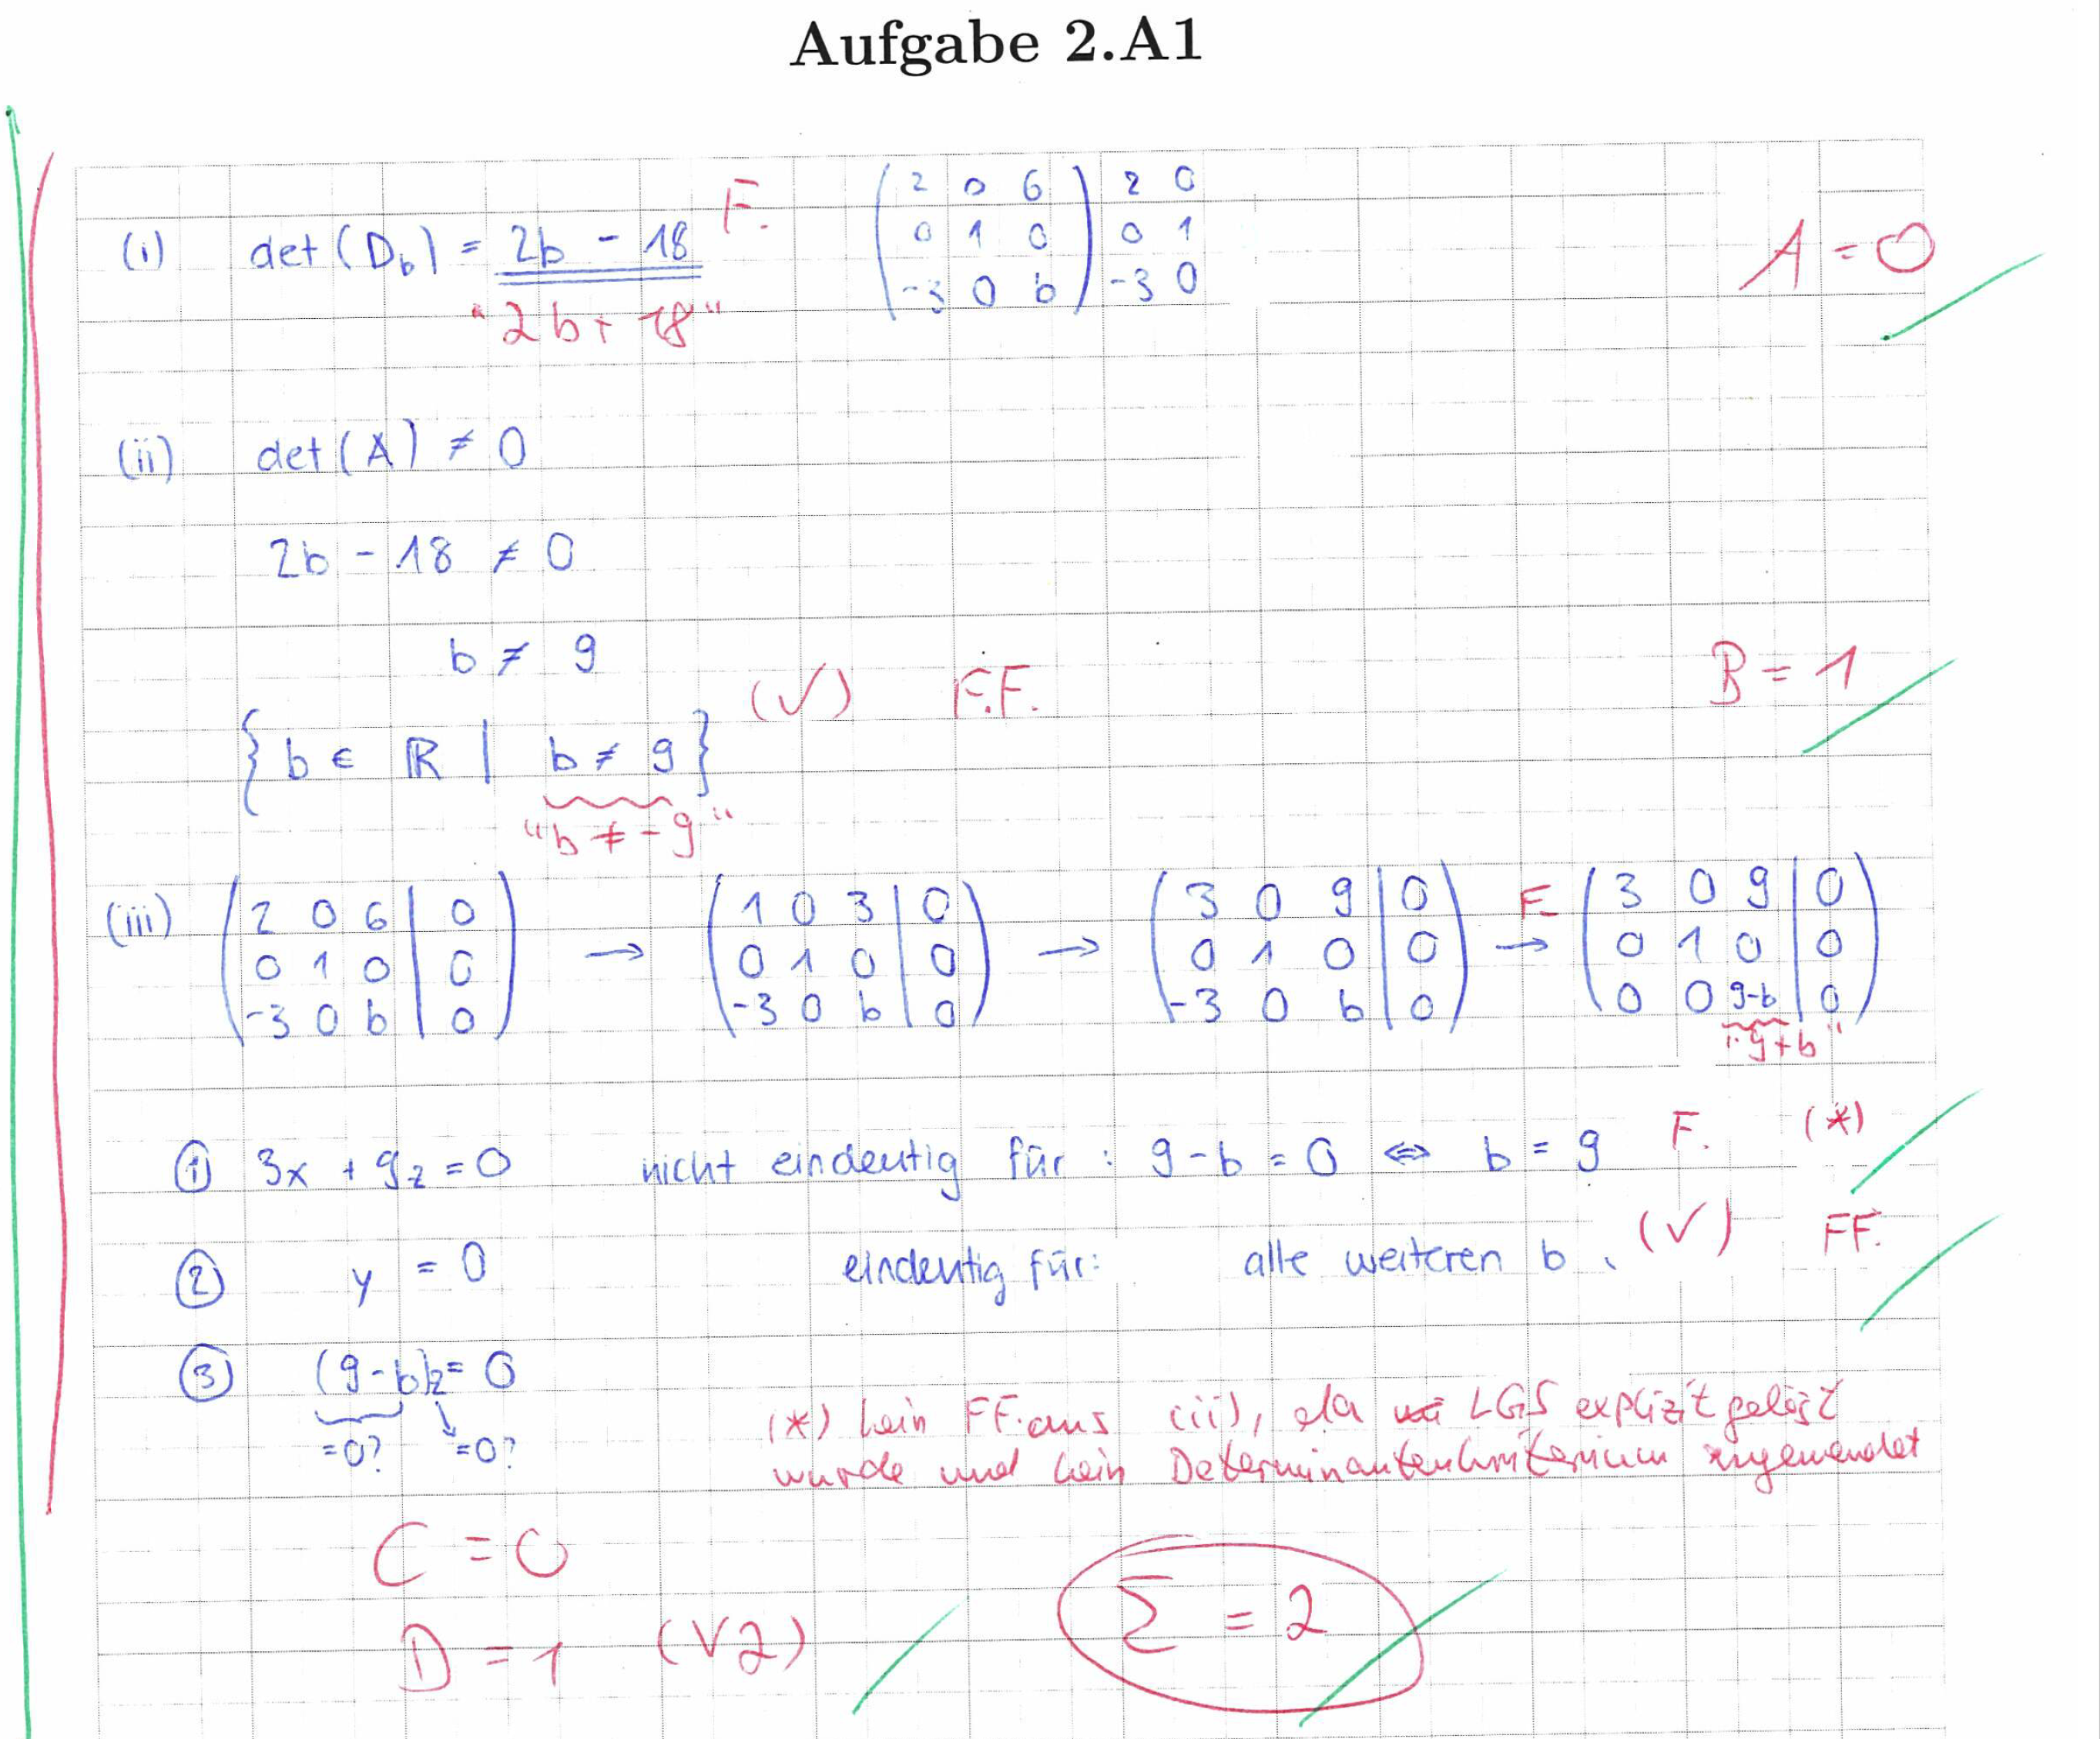 Aufgabe 2.A1
(i) det(D_b) = 2b - 18 F.
"2b + 18"
( 2 0 6 ) 2 0
( 0 1 0 ) 0 1
( -3 0 b ) -3 0
A = 0
(ii) det(A) ≠ 0
2b - 18 ≠ 0
b ≠ 9
(✓) F.F. B = 1
{ b ∈ ℝ | b ≠ 9 }
"b ≠ -9"
(iii) ( 2 0 6 | 0 ) → ( 1 0 3 | 0 ) → ( 3 0 9 | 0 ) F. → ( 3 0 9 | 0 )
( 0 1 0 | 0 ) ( 0 1 0 | 0 ) ( 0 1 0 | 0 ) ( 0 1 0 | 0 )
( -3 0 b | 0 ) ( -3 0 b | 0 ) ( -3 0 b | 0 ) ( 0 0 9-b | 0 )
"9+b"
① 3x + 9z = 0 nicht eindeutig für : 9 - b = 0 ⇔ b = 9 F. (*)
② y = 0 eindeutig für: alle weiteren b. (✓) FF.
③ (9-b)z = 0
=0? =0?
(*) kein FF. aus (ii), da LGS explizit gelöst
wurde und kein Determinantenkriterium angewendet
C = 0
D = 1 (√2)
Σ = 2